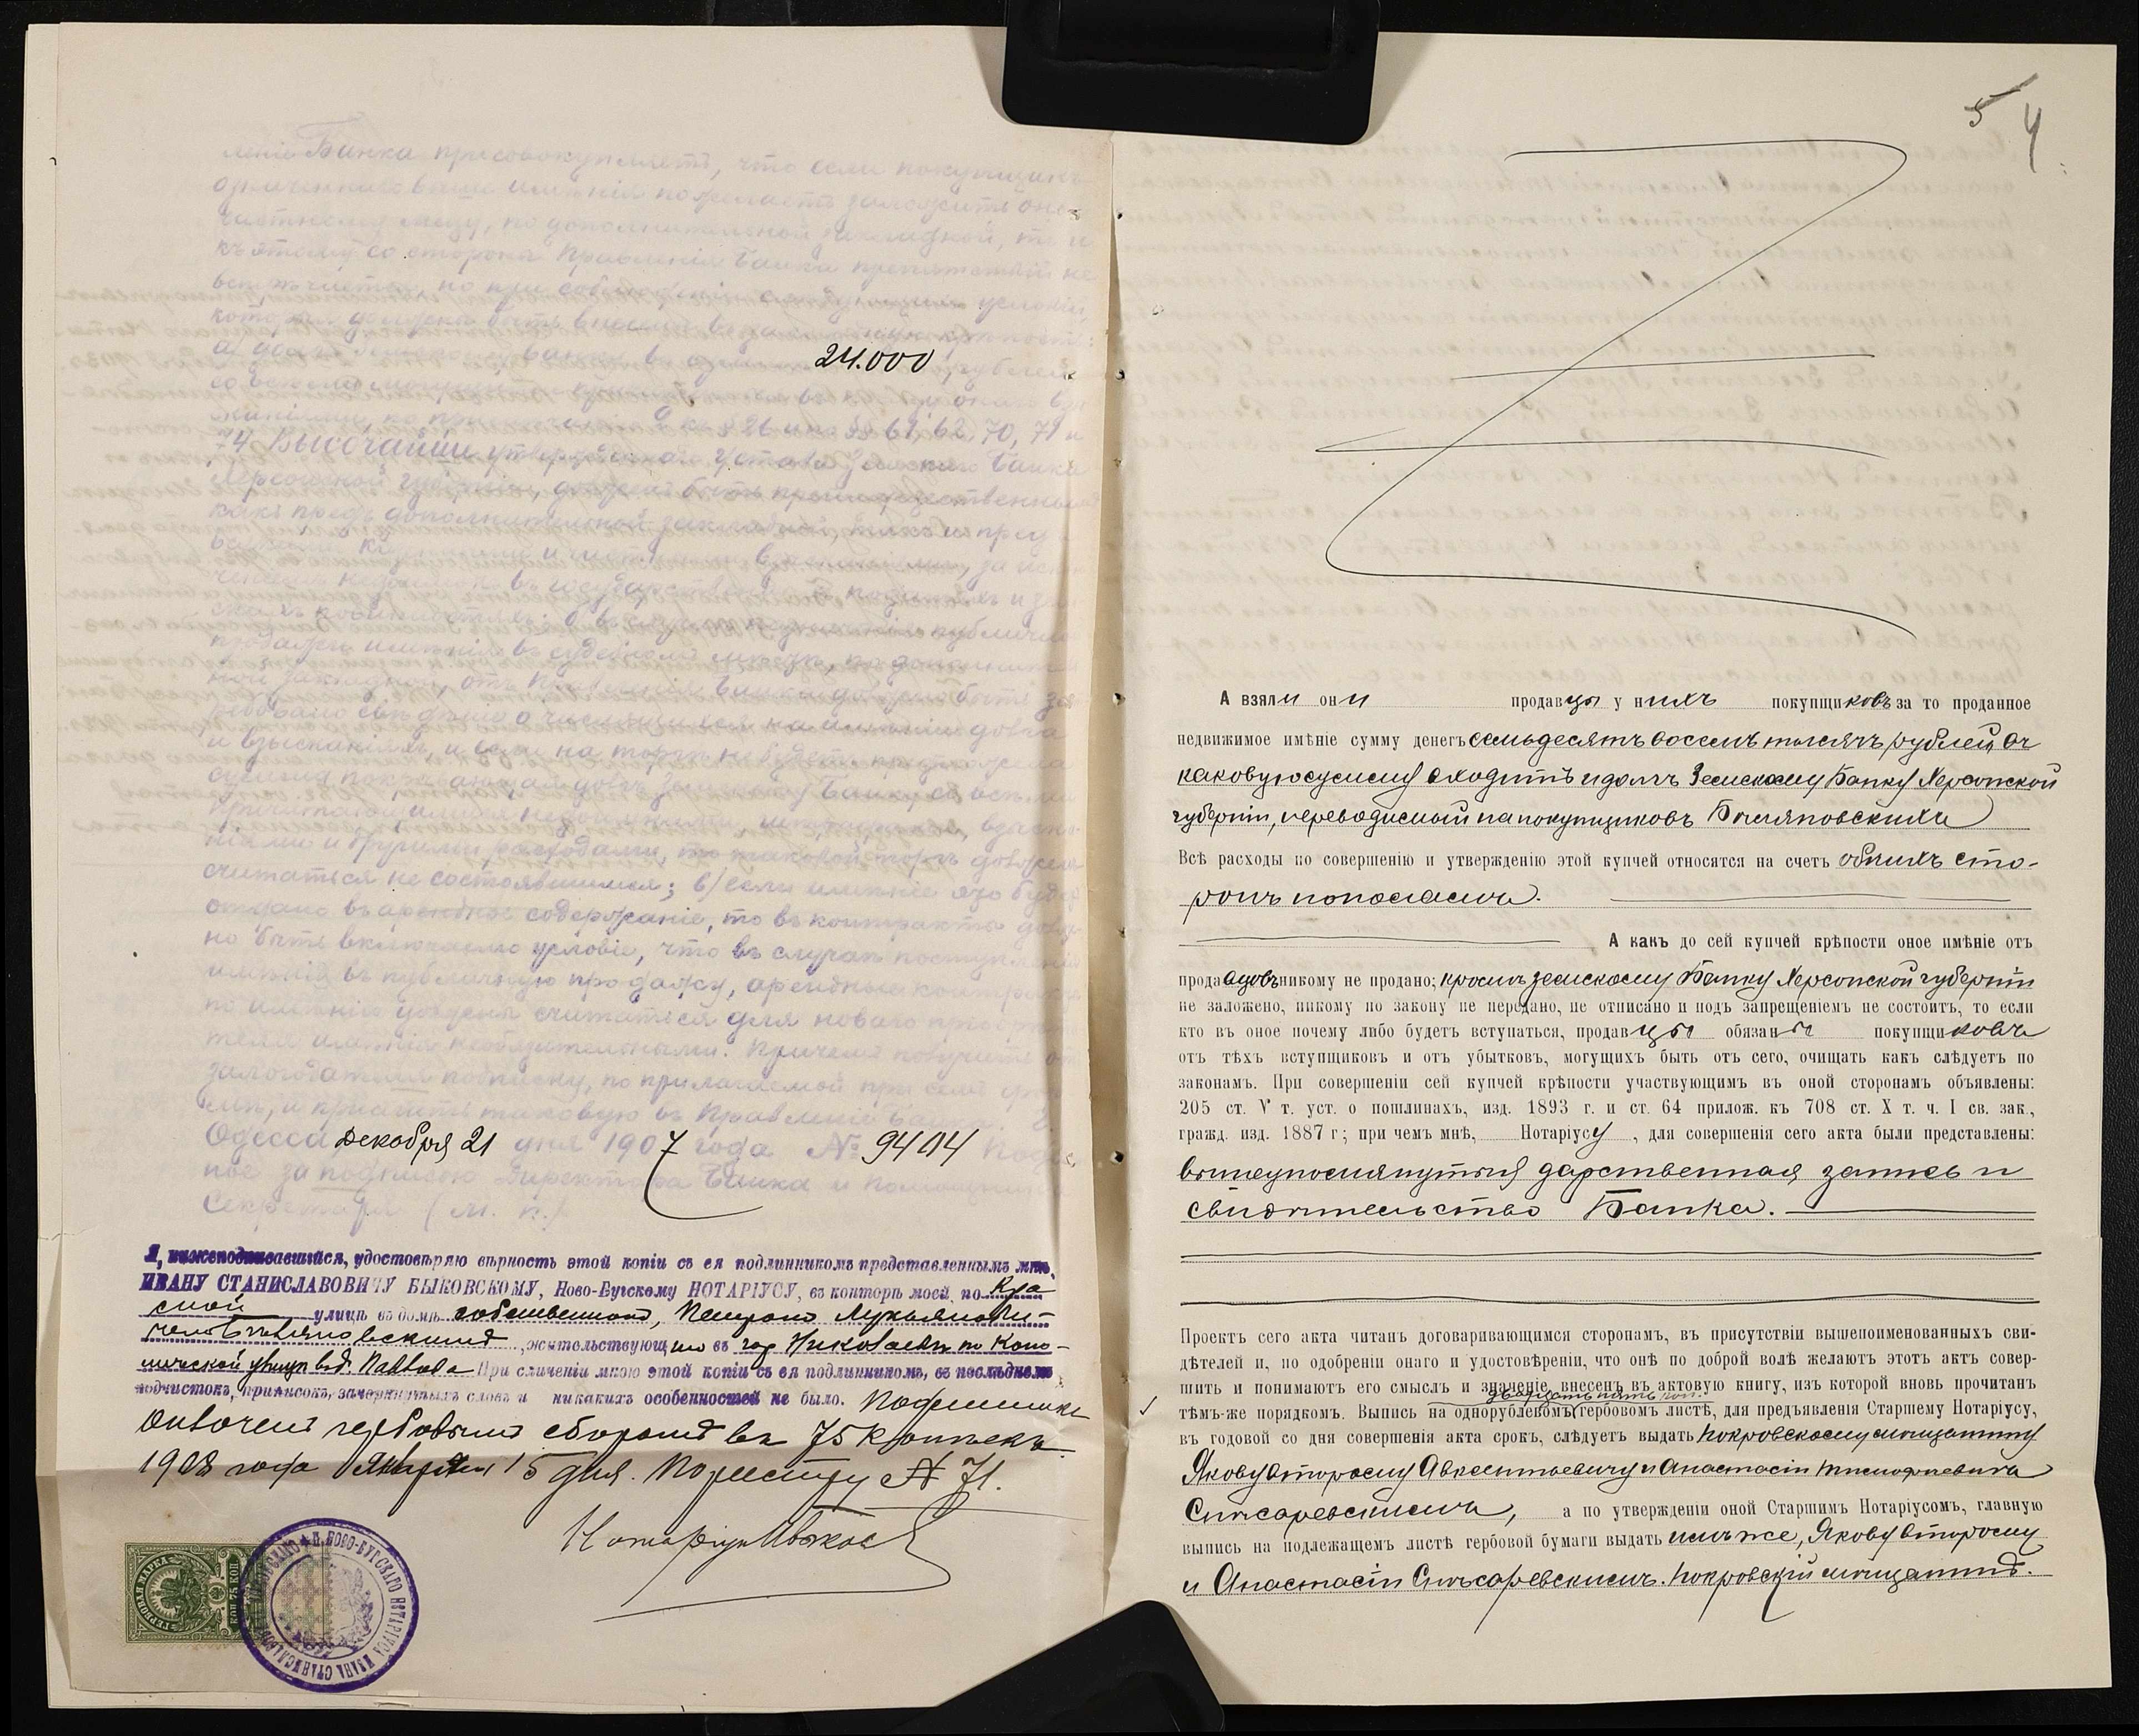 ленія Банка присовокупляетъ, что если покупщикъ
означеннаго выше имѣнія пожелаетъ заложить оное
частному лицу, по дополнительной закладной, то и
къ этому со стороны Правленія Банка препятствій не
встрѣчается, но при соблюденіи слѣдующихъ условій,
которыя должны быть внесены въ закладную крѣпость:
а) долгъ Земскому Банку въ суммѣ 24.000 рублей
со всѣми могущими
§ 26 и по §§ 61, 62, 70, 71 и
74 Высочайше утвержденнаго Устава Земскаго Банка
Херсонской губерніи, долженъ быть преимущественнымъ
какъ предъ дополнительной закладной, такъ и предъ
всякими казенными и частными взысканіями, за исклю-
ченіемъ недоимокъ въ государственныхъ податяхъ и зем-
скихъ повинностяхъ; б) въ случаѣ назначенія публичной
продажи имѣнія въ судебномъ мѣстѣ, по дополнитель-
ной закладной, отъ Правленія Банка должно быть зат-
ребовано свѣдѣніе о числящемся на имѣніи долгѣ
и взысканіяхъ, и если на торгѣ не будетъ предложена
сумма покрывающая долгъ Земскому Банку, со всѣми
причитающимися недоимками, штрафами, взыска-
ніями и другими расходами, то таковой торгъ долженъ
считаться не состоявшимся; в) если имѣніе это будетъ
отдано въ арендное содержаніе, то въ контрактѣ долж-
но быть включаемо условіе, что въ случаѣ поступленія
имѣнія въ публичную продажу, арендные контракты
по имѣнію должны считаться для новаго пріобрѣта-
теля имѣнія необязательными. Причемъ поручите отъ
залогодателя подписку, по прилагаемой при семъ фор-
мѣ, и пришлите таковую въ Правленіе Банка. г.
Одесса Декабря 21 дня 1907 года № 9404 Подлин-
ное за подписью Директора Банка и Помощника
Секретаря (м. п.)
Я, нижеподписавшійся, удостовѣряю вѣрность этой копіи съ ея подлинникомъ представленнымъ мнѣ,
ИВАНУ СТАНИСЛАВОВИЧУ БЫКОВСКОМУ, Ново-Бугскому НОТАРІУСУ, въ конторѣ моей, по Кра
сной улицѣ въ домѣ собственномъ, Петромъ Лукьянови-
чемъ Бѣляновскимъ, жительствующимъ въ гор. Николаевѣ по Коно-
нической улицѣ въ д. Павлова При сличеніи мною этой копіи съ ея подлинникомъ, въ послѣднемъ
подчистокъ, приписокъ, зачеркнутыхъ словъ и никакихъ особенностей не было. Подлинникъ
оплоченъ гербовымъ сборомъ въ 75 копѣекъ.
1908 года Января 15 дня. По реестру № 71.
Нотаріусъ Быковскій
ГЕРБОВАЯ МАРКА
75 КОП
Н.-НОВО-БУГСКАГО НОТАРІУСА ИВАНА СТАНИСЛАВОВ. БЫКОВСКАГО
5 4
А взяли они продавцы у нихъ покупщиковъ за то проданное
недвижимое имѣніе сумму денегъ семьдесятъ восемь тысячъ рублей въ
каковую сумму входитъ и долгъ Земскому Банку Херсонской
губерніи, переводимый на покупщиковъ
Всѣ расходы по совершенію и утвержденію этой купчей относятся на счетъ обѣихъ сто-
ронъ пополамъ.
А какъ до сей купчей крѣпости оное имѣніе отъ
продавцовъ никому не продано; кромѣ Земскому Банку Херсонской губерніи
не заложено, никому по закону не передано, не отписано и подъ запрещеніемъ не состоитъ, то если
кто въ оное почему либо будетъ вступаться, продавцы обязаны покупщиковъ
отъ тѣхъ вступщиковъ и отъ убытковъ, могущихъ быть отъ сего, очищать какъ слѣдуетъ по
законамъ. При совершеніи сей купчей крѣпости участвующимъ въ оной сторонамъ объявлены:
205 ст. V т. уст. о пошлинахъ, изд. 1893 г. и ст. 64 прилож. къ 708 ст. X т. ч. I св. зак.,
гражд. изд. 1887 г; при чемъ мнѣ, Нотаріусу, для совершенія сего акта были представлены:
вышеупомянутыя дарственная запись и
свидѣтельство Банка.
Проектъ сего акта читанъ договаривающимся сторонамъ, въ присутствіи вышепоименованныхъ сви-
дѣтелей и, по одобреніи онаго и удостовѣреніи, что онѣ по доброй волѣ желаютъ этотъ актъ совер-
шить и понимаютъ его смыслъ и значеніе внесенъ въ актовую книгу, изъ которой вновь прочитанъ
двадцать пять коп.
тѣмъ-же порядкомъ. Выпись на однорублевомъ гербовомъ листѣ, для предъявленія Старшему Нотаріусу,
въ годовой со дня совершенія акта срокъ, слѣдуетъ выдать покровскому мѣщанину
Якову второму Авксентьевичу и Анастасіи Тимофѣевнѣ
Слюсаревскимъ, а по утвержденіи оной Старшимъ Нотаріусомъ, главную
выпись на подлежащемъ листѣ гербовой бумаги выдать имъ же, Якову второму
и Анастасіи Слюсаревскимъ. Покровскій мѣщанинъ.